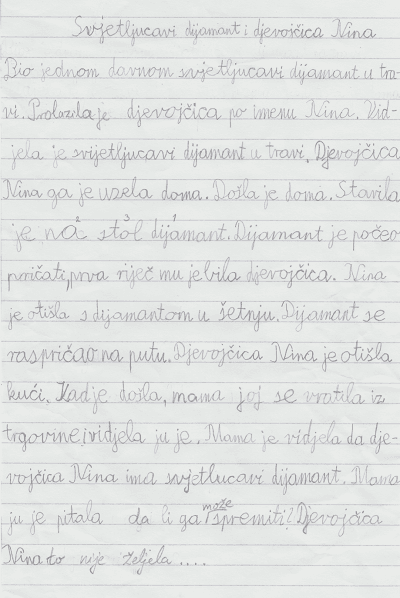 Svjetljucavi dijamant i djevojčica Nina
Bio jednom davnom svjetljucavi dijamant u tra-
vi. Prolazila je djevojčica po imenu Nina. Vid-
jela je svijetljucavi dijamant u travi. Djevojčica
Nina ga je uzela doma. Došla je doma. Stavila
je na² stol³ dijamant¹. Dijamant je počeo
pričati, prva riječ mu je bila djevojčica. Nina
je otišla s dijamantom u šetnju. Dijamant se
raspričao na putu. Djevojčica Nina je otišla
kući. Kad je došla, mama joj se vratila iz
trgovine i vidjela ju je. Mama je vidjela da dje-
vojčica Nina ima svjetlucavi dijamant. Mama
ju je pitala da li ga može spremiti? Djevojčica
Nina to nije željela ....